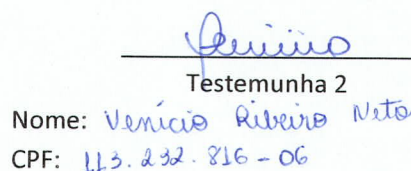 Testemunha 2
Nome: Venício Ribeiro Neto
CPF: 113.232.816-06